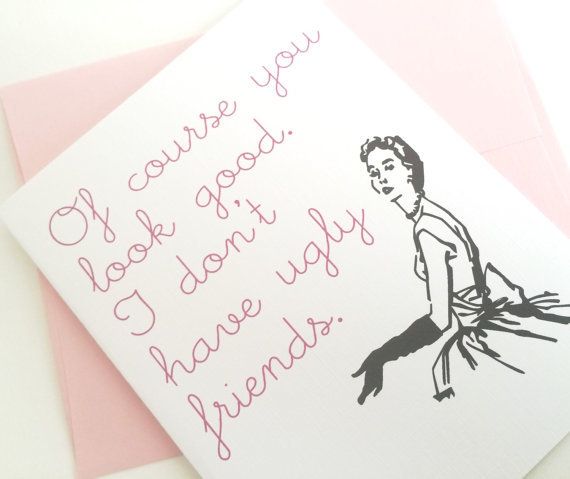 Of course you
look good.
I don't
have ugly
friends.